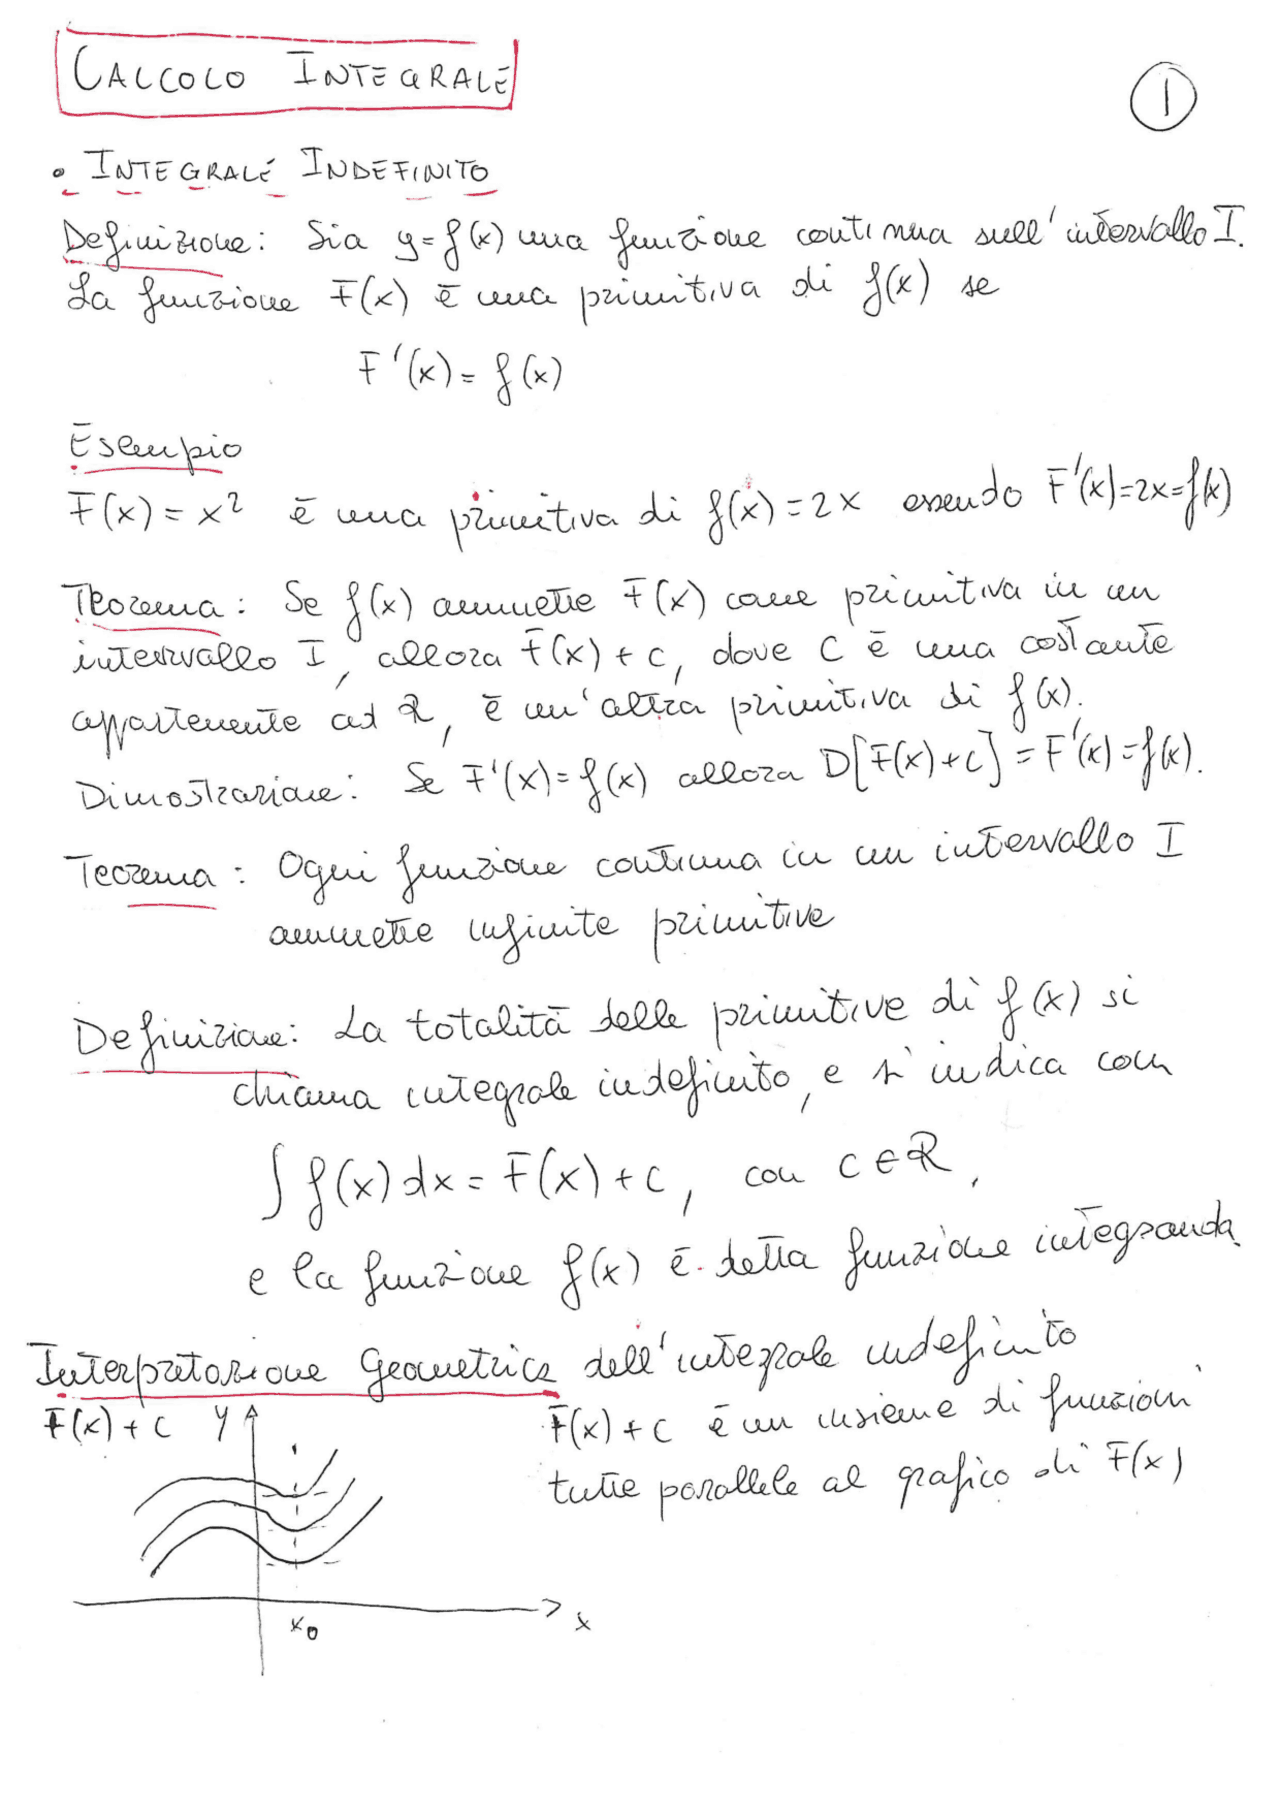 CALCOLO INTEGRALE
1
• INTEGRALE INDEFINITO
Definizione: Sia y=f(x) una funzione continua sull'intervallo I.
La funzione F(x) è una primitiva di f(x) se
F'(x)=f(x)
Esempio
F(x)=x² è una primitiva di f(x)=2x essendo F'(x)=2x=f(x)
Teorema: Se f(x) ammette F(x) come primitiva in un
intervallo I, allora F(x)+c, dove c è una costante
appartenente ad R, è un'altra primitiva di f(x).
Dimostrazione: Se F'(x)=f(x) allora D[F(x)+c]=F'(x)=f(x).
Teorema: Ogni funzione continua in un intervallo I
ammette infinite primitive
Definizione: La totalità delle primitive di f(x) si
chiama integrale indefinito, e si indica con
∫f(x)dx=F(x)+c, con c∈R,
e la funzione f(x) è detta funzione integranda.
Interpretazione Geometrica dell'integrale indefinito
F(x)+c y F(x)+c è un insieme di funzioni
tutte parallele al grafico di F(x)
x₀ x